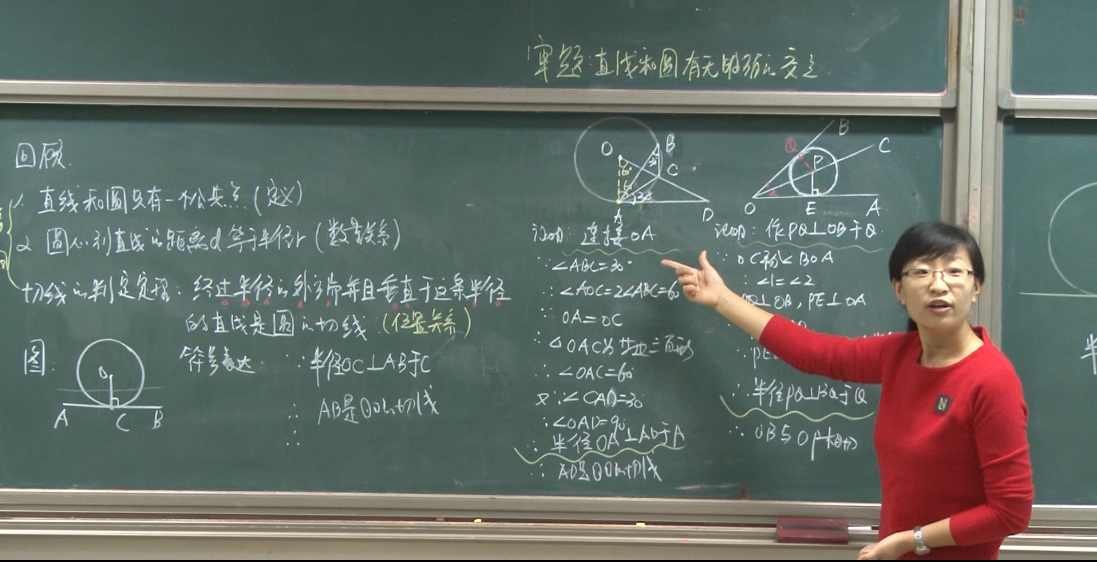 审题:直线和圆有无明确的交点
回顾.
1. 直线和圆只有一个公共点(定义)
2 圆心到直线的距离d等于半径r(数量关系)
切线的判定定理:经过半径的外端并且垂直于这条半径
的直线是圆的切线(位置关系)
图:
O
A C B
符号表达:∵半径OC⊥AB于C
∴ AB是⊙O的切线
O B C A D
30°
60°
证明:连接OA
∵∠ABC=30°
∴∠AOC=2∠ABC=60°
∵ OA=OC
∴△OAC为等边三角形
∴∠OAC=60°
又∵∠CAD=30°
∴∠OAD=90°
∴半径OA⊥AD于A
∴ AD是⊙O的切线
B Q P C O E A
证明:作PQ⊥OB于Q
∵OC平分∠BOA
∴∠1=∠2
⊥OB,PE⊥OA
∴半径PQ⊥BO于Q
∴ OB与⊙P相切
半